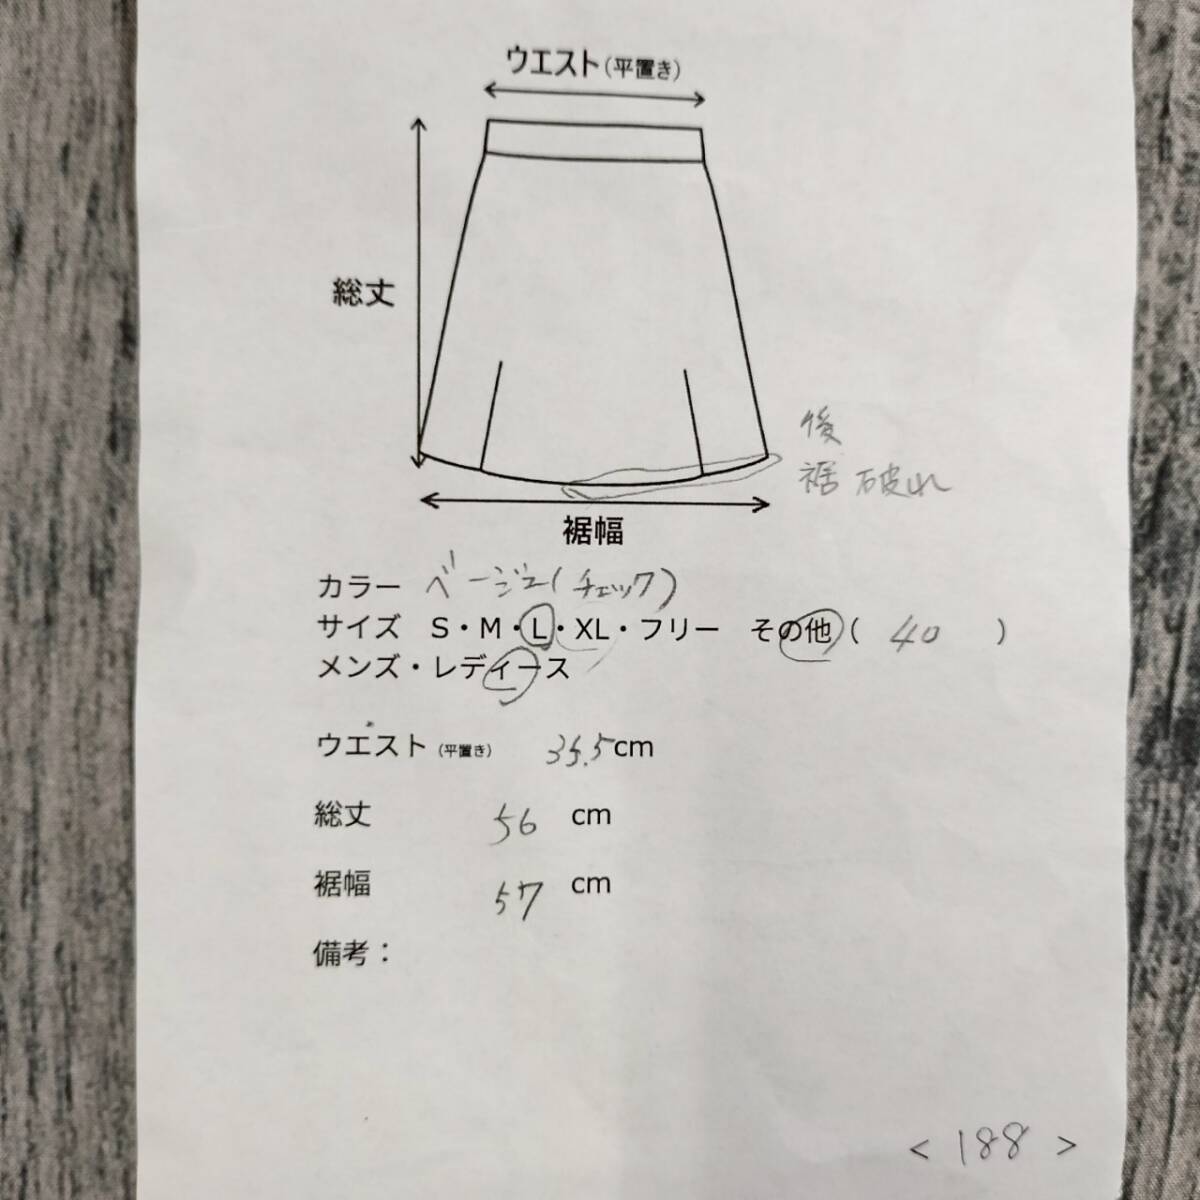 ウエスト(平置き)
総丈
後
裾 破れ
裾幅
カラー ベージュ(チェック)
サイズ S・M・L・XL・フリー その他( 40 )
メンズ・レディース
ウエスト(平置き) 35.5cm
総丈 56 cm
裾幅 57 cm
備考：
< 188 >